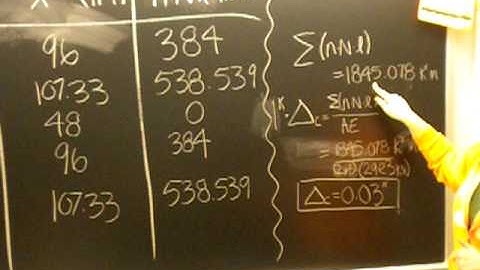 96 384
107.33 538.539
48 0
96 384
107.33 538.539
Σ(nNl)
=1845.078 k·in
1ᴷ·Δc=Σ(nNl)
AE
=1845.078 k
Δc=0.03"